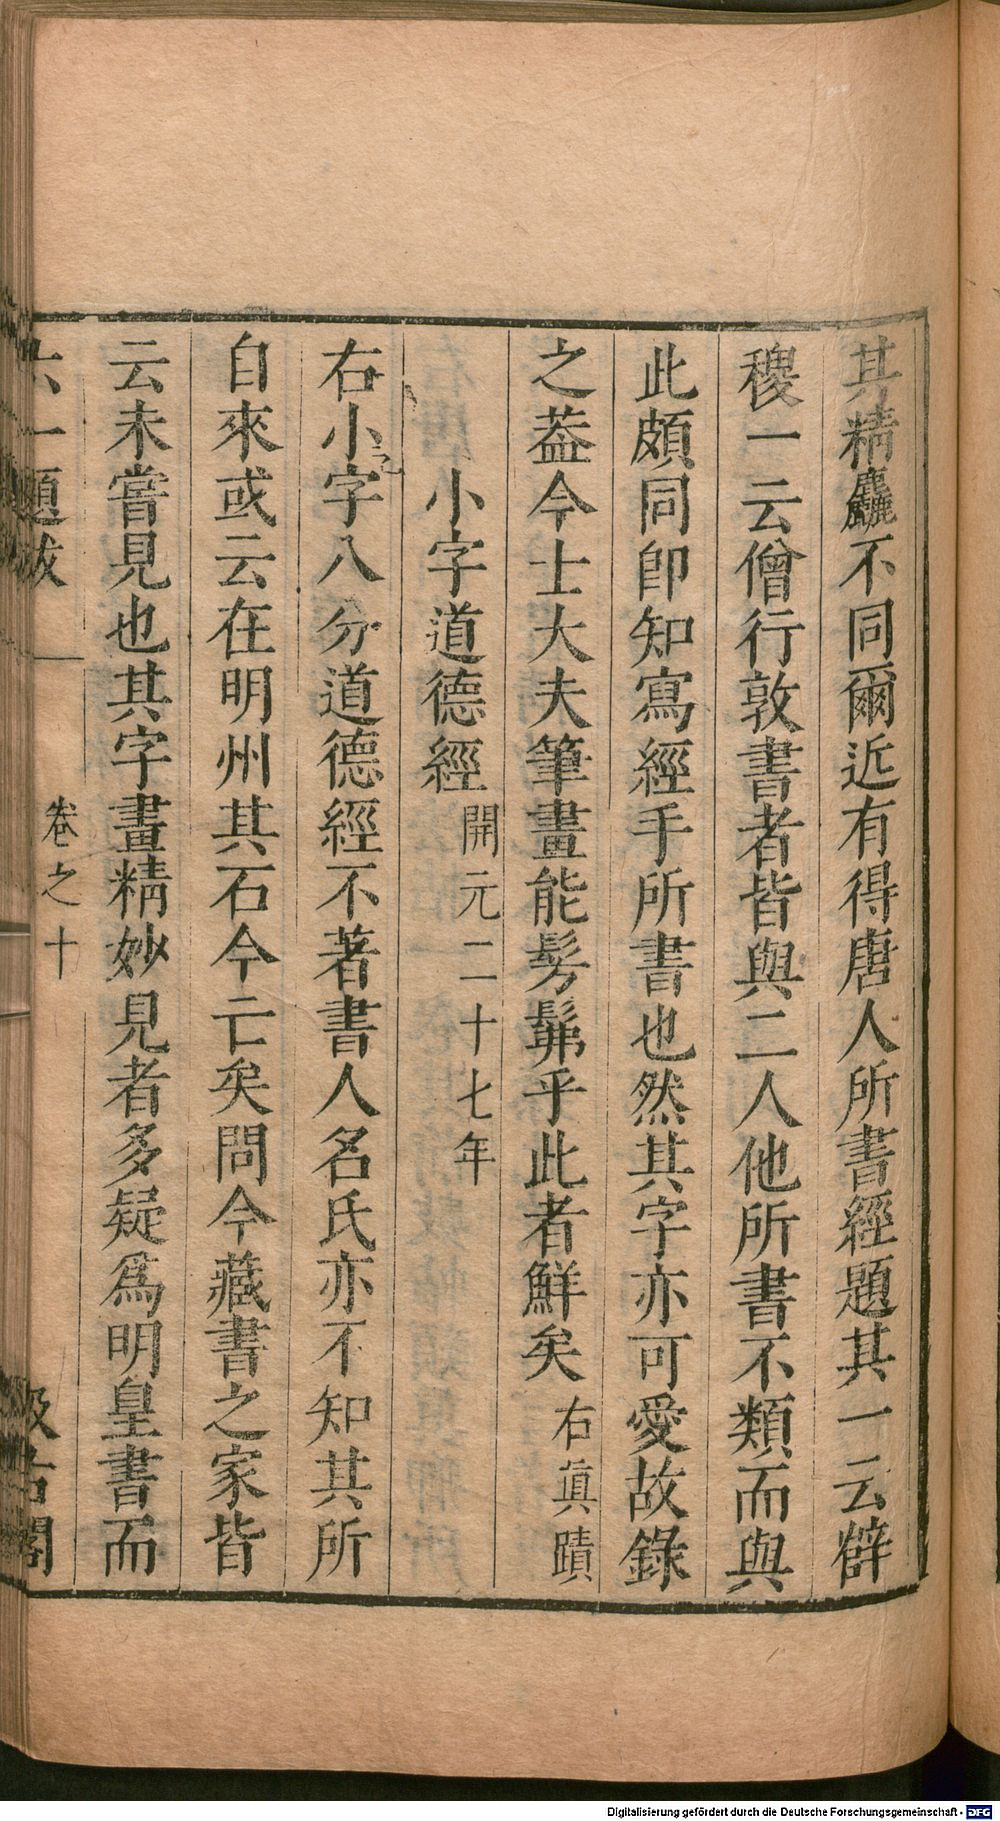 其精麤不同爾近有得唐人所書經題其一云薛
稷一云僧行敦書者皆與二人他所書不類而與
此頗同卽知寫經手所書也然其字亦可愛故錄
之葢今士大夫筆畫能髣髴乎此者鮮矣右眞蹟
小字道德經開元二十七年
右小字八分道德經不著書人名氏亦不知其所
自來或云在明州其石今亡矣問今藏書之家皆
云未嘗見也其字畫精妙見者多疑爲明皇書而
六一題跋 卷之十 汲古閣
Digitalisierung gefördert durch die Deutsche Forschungsgemeinschaft - DFG